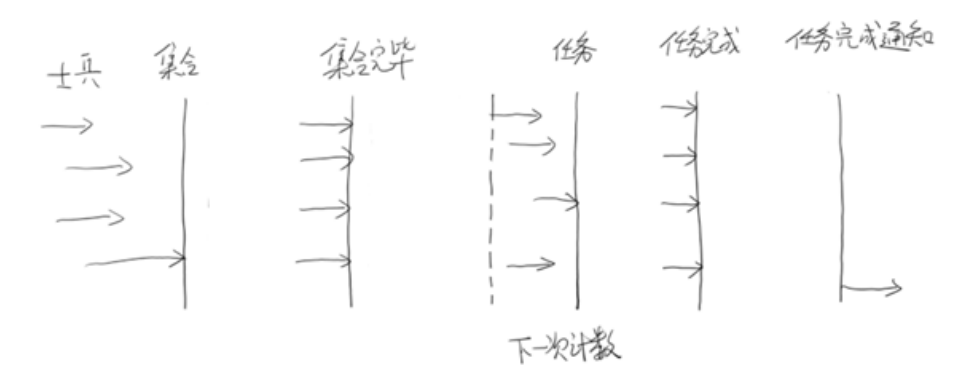 士兵
集合
集合完毕
任务
任务完成
任务完成通知
下一次计数